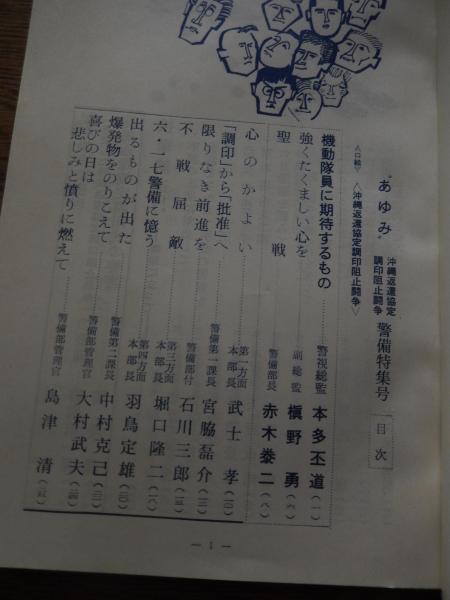 “あゆみ” 沖縄返還協定調印阻止闘争 警備特集号 目次
〈口絵〉〈沖縄返還協定調印阻止闘争〉
機動隊員に期待するもの 警視総監 本多丕道（一）
強くたくましい心を 副総監 槇野勇（六）
聖戦 警備部長 赤木泰二（八）
心のかよい 第一方面本部長 武士孝（一〇）
「調印」から「批准」へ 警備第一課長 宮脇磊介（一二）
限りなき前進を 警備部付 石川三郎（一五）
不戦屈敵 第三方面本部長 堀口隆二（一八）
六・一七警備に憶う 第四方面本部長 羽鳥定雄（二〇）
出るものが出た 警備第二課長 中村克己（二二）
爆発物をのりこえて 警備部管理官 大村武夫（二四）
喜びの日は悲しみと憤りに燃えて 警備部管理官 島津清（二五）
— 1 —